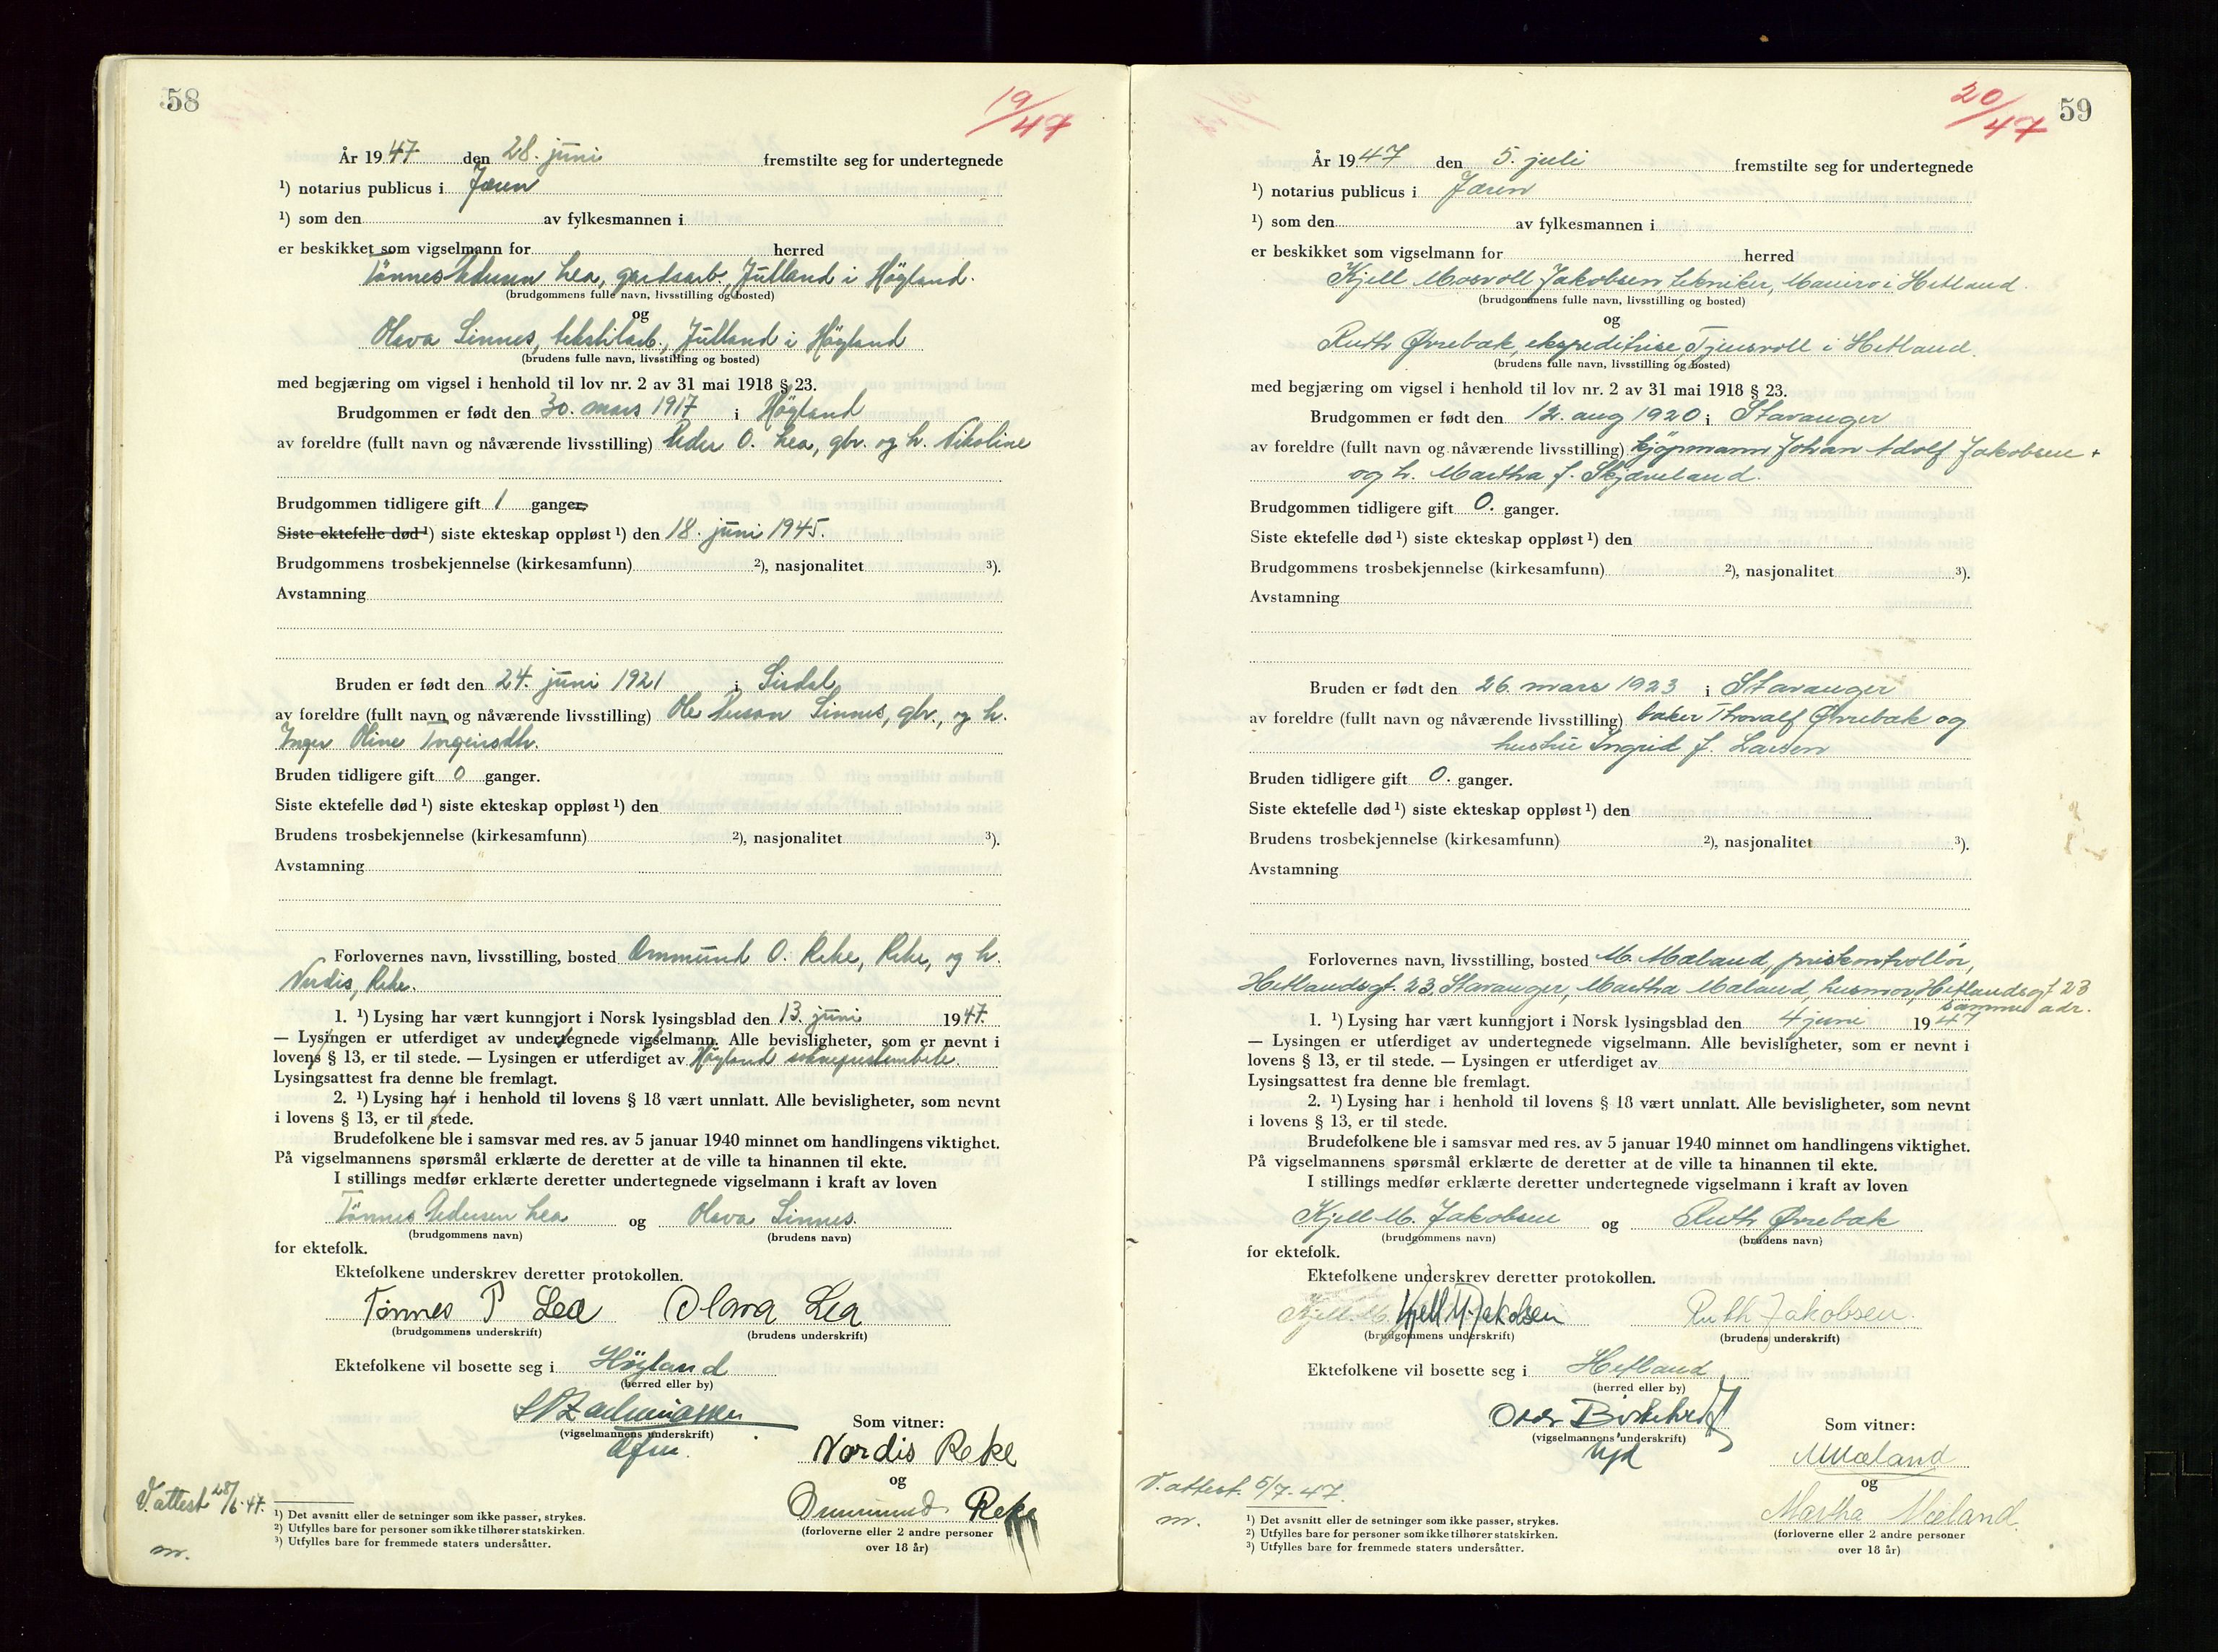 58
19/47
År 1947 den 28. juni fremstilte seg for undertegnede
¹) notarius publicus i Jæren
¹) som den av fylkesmannen i
er beskikket som vigselmann for herred
Tönnes Pedersen Lea, gardsarb., Jutland i Høyland.
(brudgommens fulle navn, livsstilling og bosted)
og
Olava Sinnes, tekstilarb., Jutland i Høyland
(brudens fulle navn, livsstilling og bosted)
med begjæring om vigsel i henhold til lov nr. 2 av 31 mai 1918 § 23.
Brudgommen er født den 30. mars 1917 i Høyland
av foreldre (fullt navn og nåværende livsstilling) Peder O. Lea, gbr. og h. Nikoline
Brudgommen tidligere gift 1 ganger.
Siste ektefelle død ¹) siste ekteskap oppløst ¹) den 18. juni 1945.
Brudgommens trosbekjennelse (kirkesamfunn) ²), nasjonalitet ³).
Avstamning
Bruden er født den 24. juni 1921 i Sirdal
av foreldre (fullt navn og nåværende livsstilling) Ole Person Sinnes, gbr., og h.
Inger Oline Torgeirsdtr.
Bruden tidligere gift 0 ganger.
Siste ektefelle død ¹) siste ekteskap oppløst ¹) den
Brudens trosbekjennelse (kirkesamfunn) ²), nasjonalitet ³).
Avstamning
Forlovernes navn, livsstilling, bosted Ommund O. Reke, Reke, og h.
Nordis, Reke.
1. ¹) Lysing har vært kunngjort i Norsk lysingsblad den 13. juni 1947.
— Lysingen er utferdiget av undertegnede vigselmann. Alle bevisligheter, som er nevnt i
lovens § 13, er til stede. — Lysingen er utferdiget av Høyland sokneprestembete.
Lysingsattest fra denne ble fremlagt.
2. ¹) Lysing har i henhold til lovens § 18 vært unnlatt. Alle bevisligheter, som nevnt
i lovens § 13, er til stede.
Brudefolkene ble i samsvar med res. av 5 januar 1940 minnet om handlingens viktighet.
På vigselmannens spørsmål erklærte de deretter at de ville ta hinannen til ekte.
I stillings medfør erklærte deretter undertegnede vigselmann i kraft av loven
Tönnes Pedersen Lea og Olava Sinnes.
(brudgommens navn) (brudens navn)
for ektefolk.
Ektefolkene underskrev deretter protokollen.
Tönnes P Lea Olava Lea
(brudgommens underskrift) (brudens underskrift)
Ektefolkene vil bosette seg i Høyland
(herred eller by)
(vigselmannens underskrift)
Som vitner:
Nordis Reke
og
Ommund Reke
(forloverne eller 2 andre personer
over 18 år)
V. attest 28/6-47.
m.
¹) Det avsnitt eller de setninger som ikke passer, strykes.
²) Utfylles bare for personer som ikke tilhører statskirken.
³) Utfylles bare for fremmede staters undersåtter.
59
20/47
År 1947 den 5. juli fremstilte seg for undertegnede
¹) notarius publicus i Jæren
¹) som den av fylkesmannen i
er beskikket som vigselmann for herred
Kjell Mosvoll Jakobsen, tekniker, Mariero i Hetland.
(brudgommens fulle navn, livsstilling og bosted)
og
Ruth Øvrebak, ekspeditrise, Tjensvoll i Hetland.
(brudens fulle navn, livsstilling og bosted)
med begjæring om vigsel i henhold til lov nr. 2 av 31 mai 1918 § 23.
Brudgommen er født den 12. aug 1920 i Stavanger
av foreldre (fullt navn og nåværende livsstilling) kjøpmann Johan Adolf Jakobsen
og h. Martha f. Skjæveland.
Brudgommen tidligere gift 0. ganger.
Siste ektefelle død ¹) siste ekteskap oppløst ¹) den
Brudgommens trosbekjennelse (kirkesamfunn) ²), nasjonalitet ³).
Avstamning
Bruden er født den 26. mars 1923 i Stavanger
av foreldre (fullt navn og nåværende livsstilling) baker Thoralf Øvrebak og
hustru Ingrid f. Larsen
Bruden tidligere gift 0. ganger.
Siste ektefelle død ¹) siste ekteskap oppløst ¹) den
Brudens trosbekjennelse (kirkesamfunn) ²), nasjonalitet ³).
Avstamning
Forlovernes navn, livsstilling, bosted M. Mæland, priskontrollør,
Hetlandsgt. 23, Stavanger, Martha Mæland, husmor, Hetlandsgt 23
samme adr.
1. ¹) Lysing har vært kunngjort i Norsk lysingsblad den 4 juni 1947
— Lysingen er utferdiget av undertegnede vigselmann. Alle bevisligheter, som er nevnt i
lovens § 13, er til stede. — Lysingen er utferdiget av
Lysingsattest fra denne ble fremlagt.
2. ¹) Lysing har i henhold til lovens § 18 vært unnlatt. Alle bevisligheter, som nevnt
i lovens § 13, er til stede.
Brudefolkene ble i samsvar med res. av 5 januar 1940 minnet om handlingens viktighet.
På vigselmannens spørsmål erklærte de deretter at de ville ta hinannen til ekte.
I stillings medfør erklærte deretter undertegnede vigselmann i kraft av loven
Kjell M. Jakobsen og Ruth Øvrebak
(brudgommens navn) (brudens navn)
for ektefolk.
Ektefolkene underskrev deretter protokollen.
Kjell M. Kjell M Jakobsen Ruth Jakobsen.
(brudgommens underskrift) (brudens underskrift)
Ektefolkene vil bosette seg i Hetland
(herred eller by)
(vigselmannens underskrift)
Som vitner:
M Mæland
og
Martha Mæland.
(forloverne eller 2 andre personer
over 18 år)
V. attest. 5/7-47.
m.
¹) Det avsnitt eller de setninger som ikke passer, strykes.
²) Utfylles bare for personer som ikke tilhører statskirken.
³) Utfylles bare for fremmede staters undersåtter.